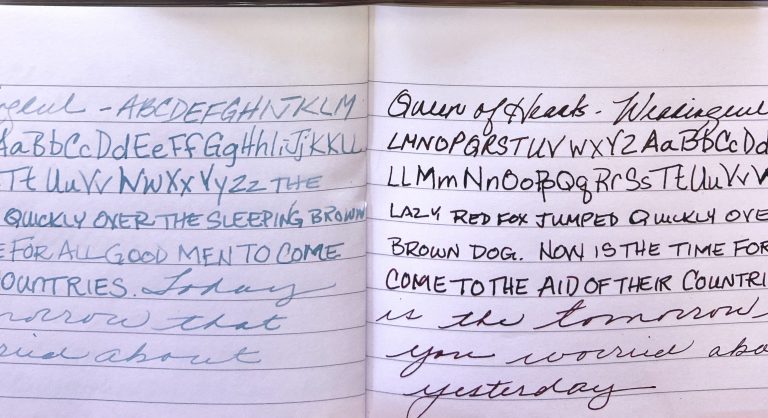 - ABCDEFGHIJKLM
AaBbCcDdEeFfGgHhIiJjKkLL
TtUuVvWwXxYyZz THE
QUICKLY OVER THE SLEEPING BROWN
E FOR ALL GOOD MEN TO COME
OUNTRIES. Today
morrow that
ried about
Queen of Hearts -
LMNOPQRSTUVWXYZ AaBbCcDd
LLMmNnOoPpQqRrSsTtUuVv
LAZY RED FOX JUMPED QUICKLY OVE
BROWN DOG. NOW IS THE TIME FOR
COME TO THE AID OF THEIR COUNTRI
is the tomorrow
you worried abo
yesterday